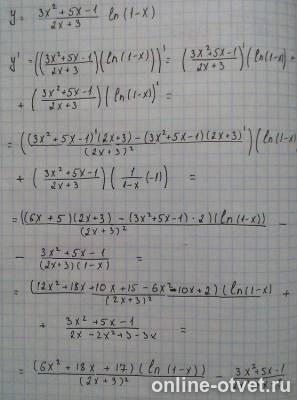 y = (3x²+5x-1)/(2x+3) ln(1-x)
y' = (((3x²+5x-1)/(2x+3))(ln(1-x)))' = ((3x²+5x-1)/(2x+3))'(ln(1-x) +
+ ((3x²+5x-1)/(2x+3))(ln(1-x))' =
= (((3x²+5x-1)'(2x+3) - (3x²+5x-1)(2x+3)')/(2x+3)²)(ln(1-x)
+ ((3x²+5x-1)/(2x+3))(1/(1-x) (-1)) =
= ((6x+5)(2x+3) - (3x²+5x-1)·2)(ln(1-x))/(2x+3)² -
- (3x²+5x-1)/((2x+3)(1-x)) =
= (12x²+18x+10x+15-6x²-10x+2)(ln(1-x)/(2x+3)² +
+ (3x²+5x-1)/(2x-2x²+3-3x) =
= (6x²+18x+17)(ln(1-x))/(2x+3)² - (3x²+5x-1)/
online-otvet.ru